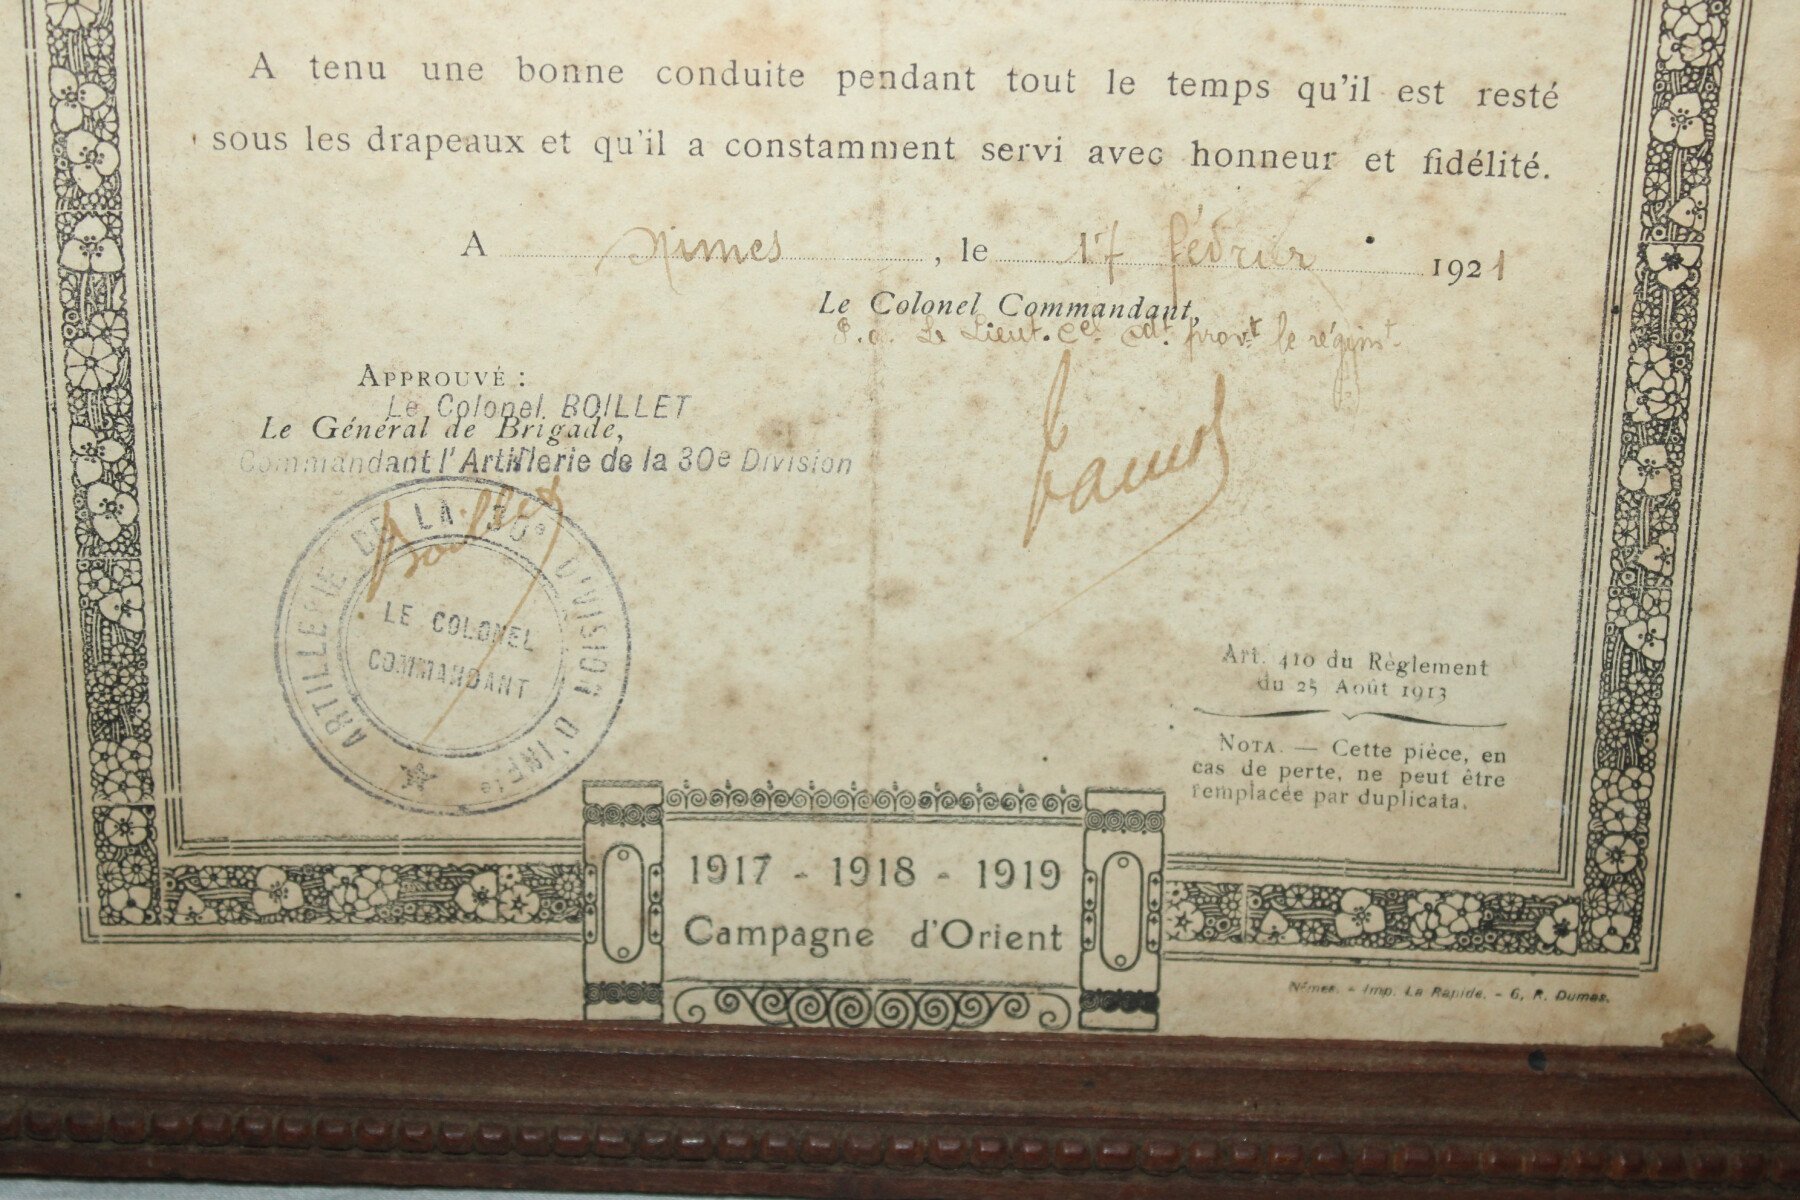 A tenu une bonne conduite pendant tout le temps qu'il est resté
sous les drapeaux et qu'il a constamment servi avec honneur et fidélité.
A Nimes, le 17 février 1921
Le Colonel Commandant,
P. o. Le Lieut. Cel Cdt provt le régimt
APPROUVÉ :
Le Colonel BOILLET
Le Général de Brigade,
Commandant l'Artillerie de la 30e Division
Boillet
ARTILLERIE DE LA 30e DIVISION D'INFie
LE COLONEL
COMMANDANT
Art. 410 du Règlement
du 25 Août 1913
NOTA. — Cette pièce, en
cas de perte, ne peut être
remplacée par duplicata.
1917 - 1918 - 1919
Campagne d'Orient
Nîmes. - Imp. La Rapide. - 6, R. Dumas.